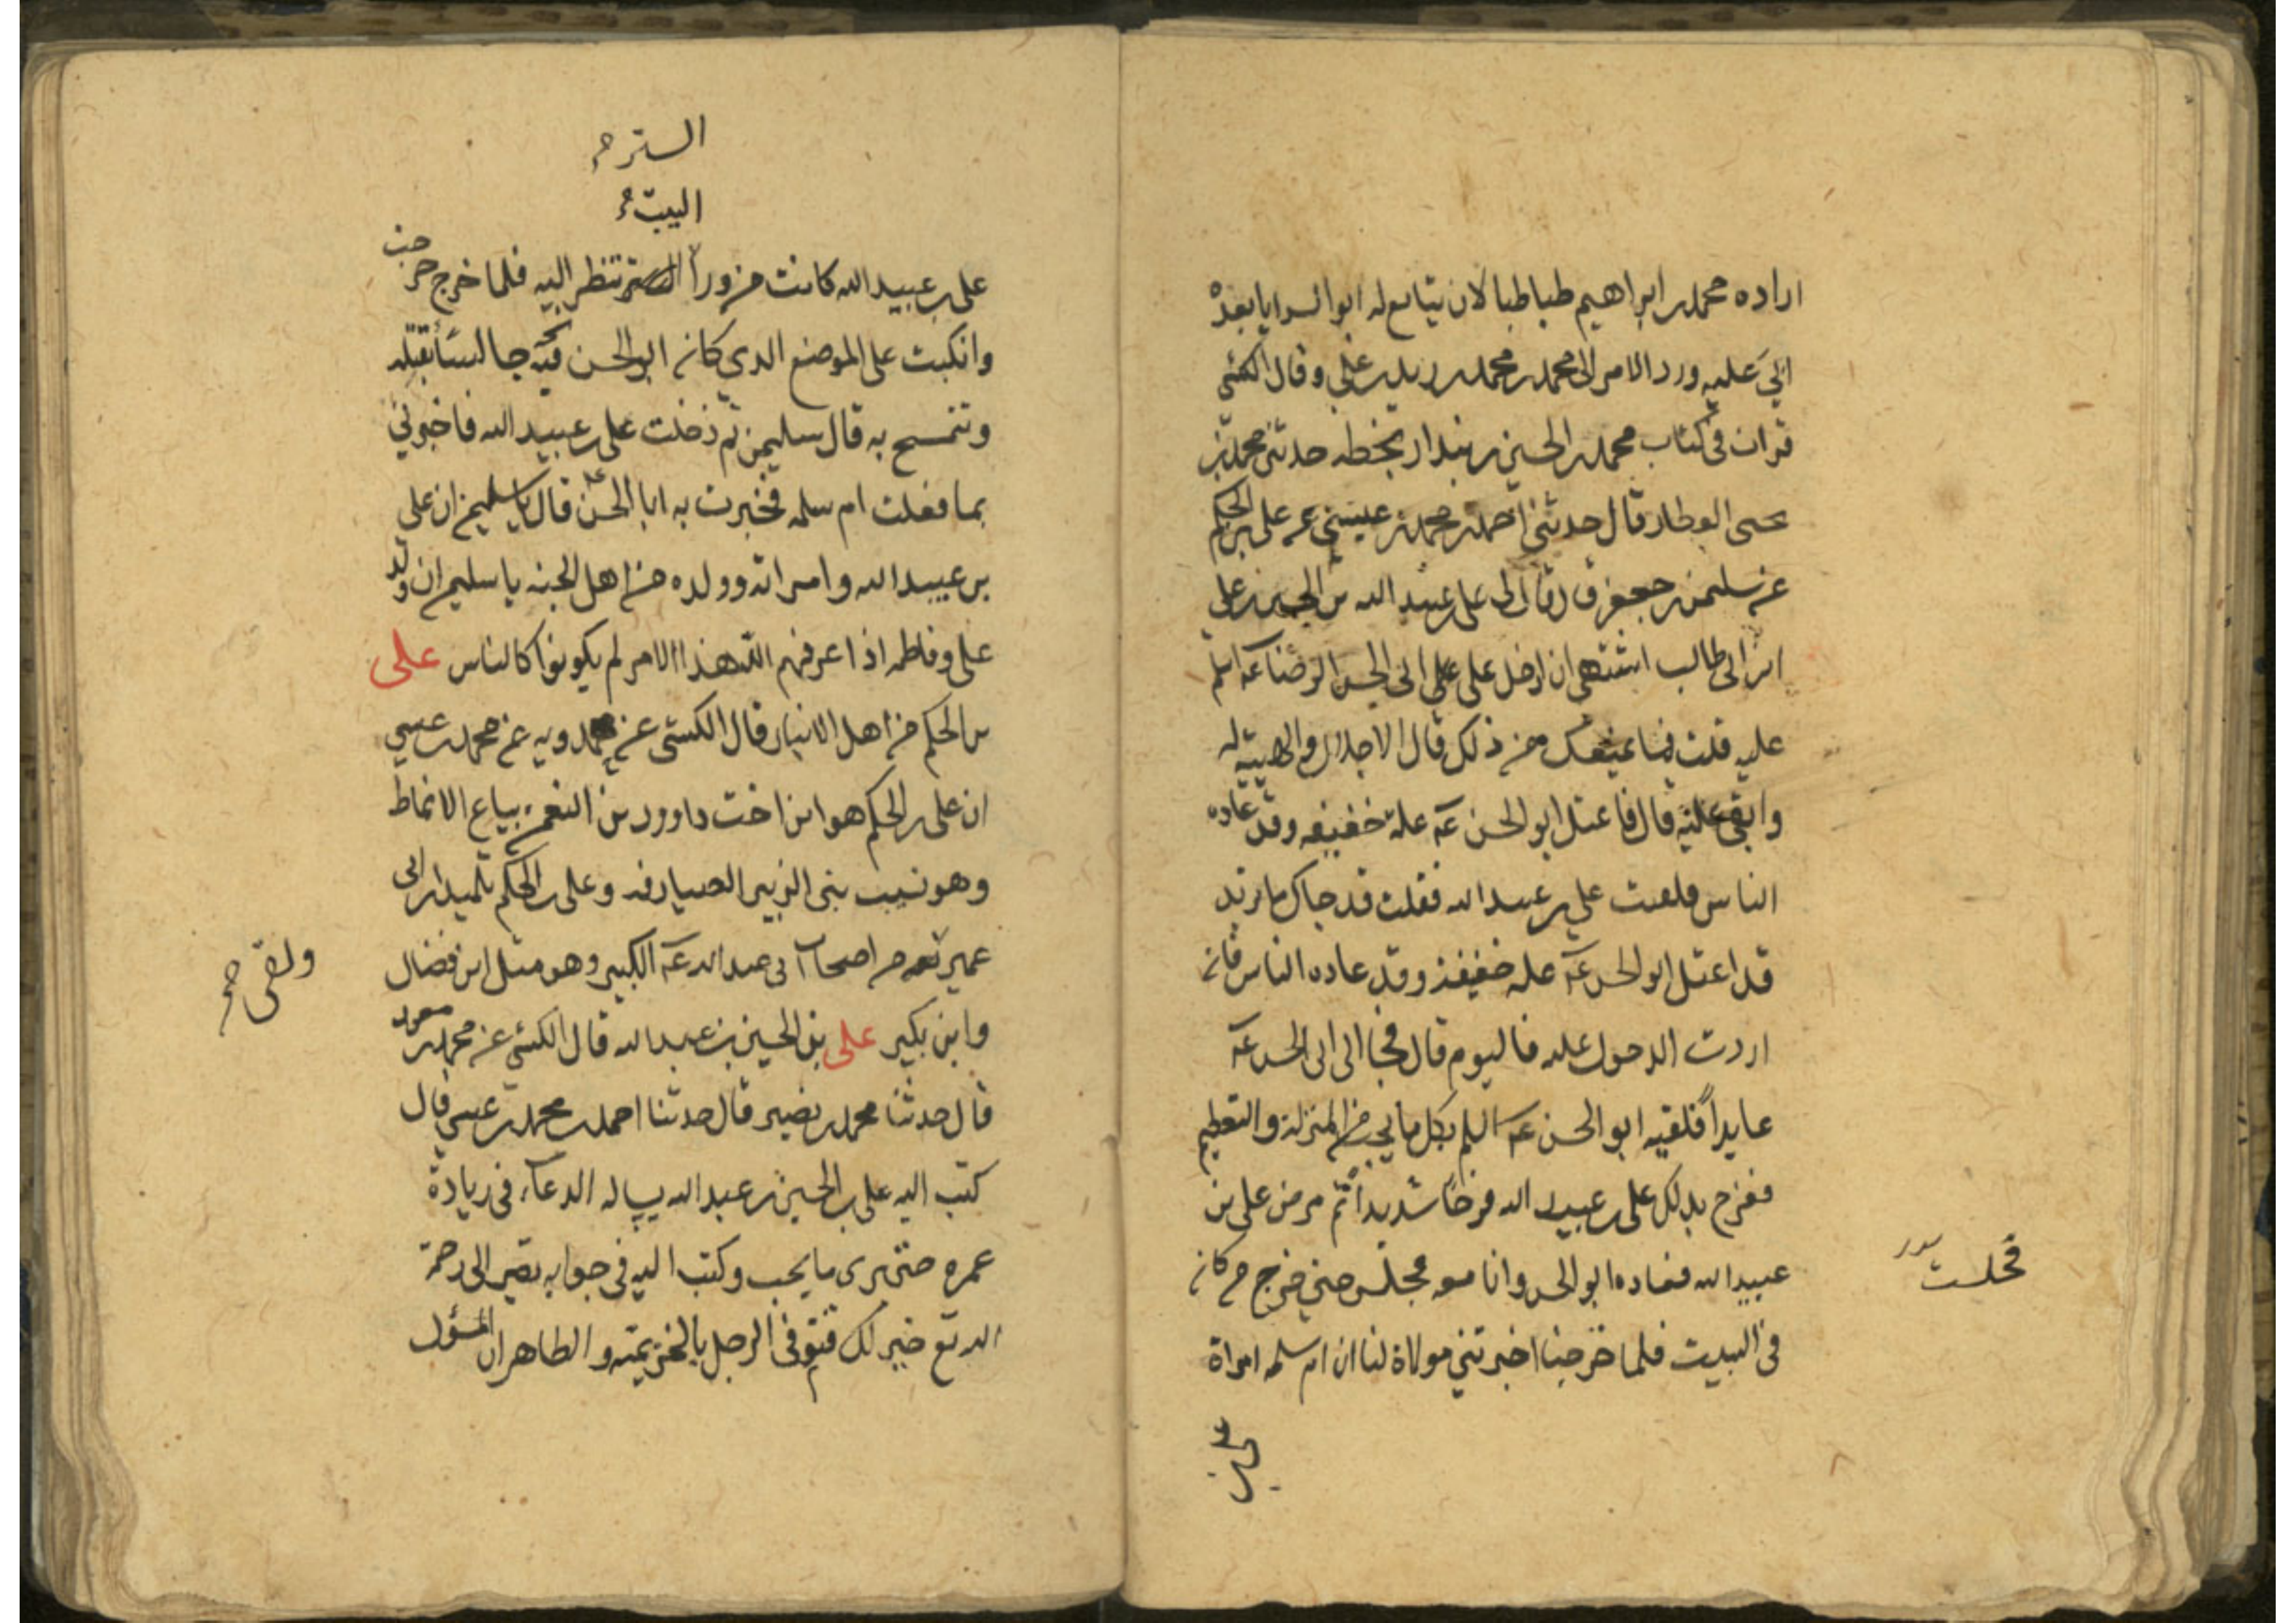 اراده محمد بن ابراهيم طباطبا لان يتابع له ابو السرايا بعده
ابي عليه ورد الامر الى محمد بن محمد بن زيد بن علي وقال الكشي
قرات في كتاب محمد بن الحسين بن بندار بخطه حدثني محمد بن
يحيى العطار قال حدثني احمد بن محمد بن عيسى عن علي بن الحكم
عن سليمن بن جعفر قال قال لي علي بن عبيد الله بن الحسين بن علي
ابن ابي طالب اشتهي ان ادخل على ابي الحسن الرضا ع اسلم
عليه قلت فما يمنعك من ذلك قال الاجلال والهيبة له
وابقي عليه قال فاعتل ابو الحسن ع علة خفيفه وقد عاده
الناس فلقيت علي بن عبيد الله فقلت قد جاك ما تريد
قد اعتل ابو الحسن ع علة خفيفة وقد عاده الناس فان
اردت الدخول عليه فاليوم قال فجا الى ابي الحسن ع
عايداً فلقيه ابو الحسن ع بكل ما يحب من المنزلة والتعظيم
ففرح بذلك علي بن عبيد الله فرحا شديداً ثم مرض علي بن
عبيد الله فعاده ابو الحسن وانا معه مجلس حتى خرج من كان
في البيت فلما خرجنا اخبرتني مولاة لنا ان ام سلمه امراة
فجلست
علي بن
الستر
البيت
علي بن عبيد الله كانت من وراء الستر تنظر اليه فلما خرج خرجت
وانكبت على الموضع الذي كان ابو الحسن فيه جالساً تقبله
وتتمسح به قال سليمن ثم دخلت على علي بن عبيد الله فاخبرني
بما فعلت ام سلمه فخبرت به ابا الحسن ع قال يا سليمن ان علي
بن عبيد الله وامراته وولده من اهل الجنه يا سليمن ان ولد
علي وفاطمه اذا عرفهم الله هذا الامر لم يكونوا كالناس علي
بن الحكم من اهل الانبار قال الكشي عن حمدويه عن محمد بن عيسى
ان علي بن الحكم هو ابن اخت داوود بن النعمن بياع الانماط
وهو نسيب بني الزبير الصيارفه وعلي بن الحكم تلميذ ابن ابي
عمير من اصحاب ابي عبد الله ع الكبير وهو مثل ابن فضال
ولقي
وابن بكير علي بن الحسين بن عبد الله قال الكشي عن محمد بن مسعود
قال حدثنا محمد بن نصير قال حدثنا احمد بن محمد بن عيسى قال
كتب اليه علي بن الحسين بن عبد الله يساله الدعاء في زيادة
عمره حتى يرى ما يحب وكتب اليه في جوابه تصير الى رحمة
الله تع خير لك فتوفى الرجل بالخزيمته والظاهر ان المسؤل